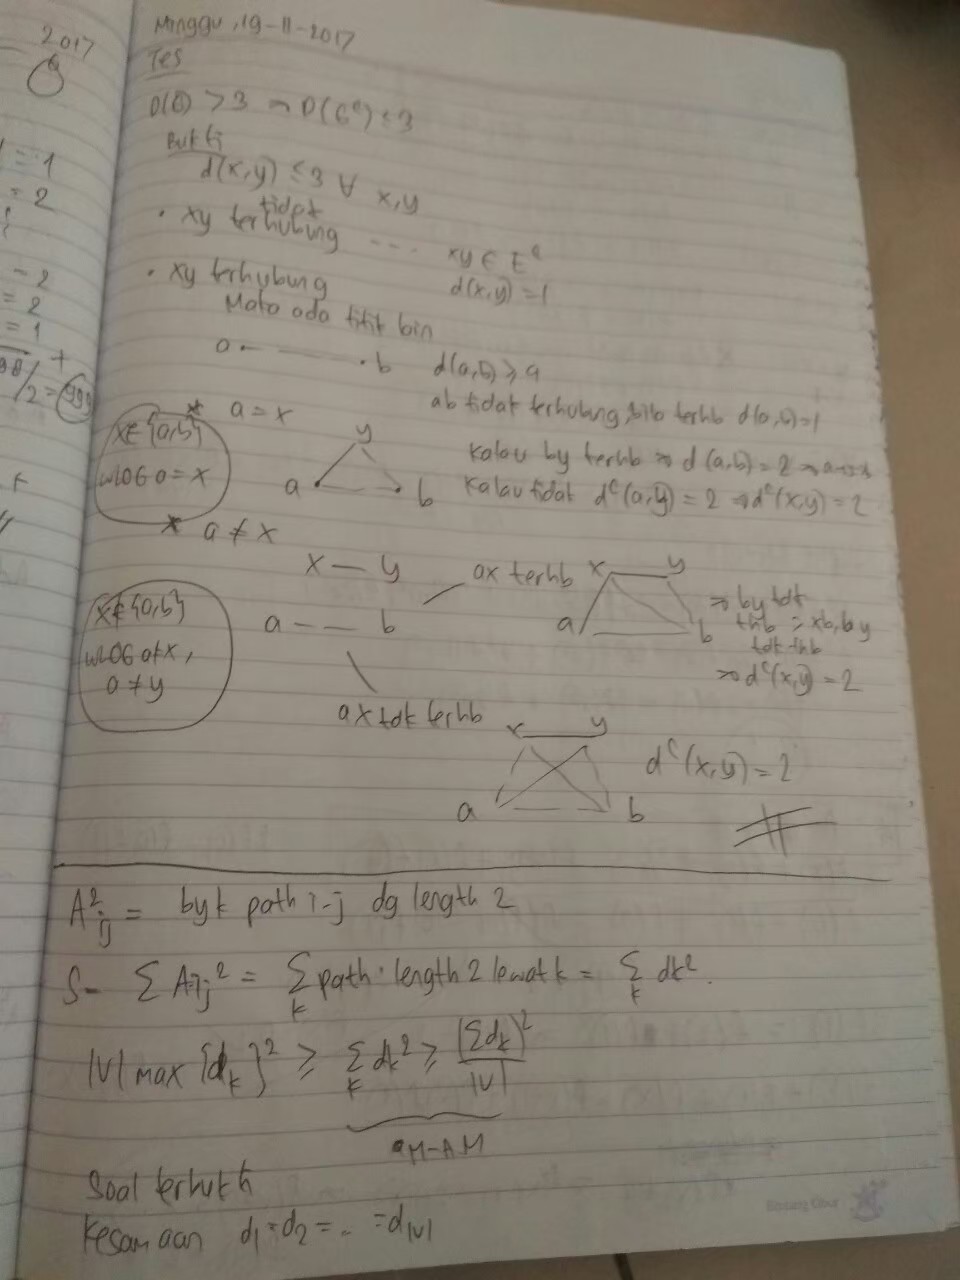 2017
= 1
= 2
- 2
= 2
= 1
+
/2 = 999
Minggu, 19-11-2017
Tes
D(G) > 3 → D(Gᶜ) < 3
Bukti
d(x,y) ≤ 3 ∀ x,y
• xy tidak terhubung .... xy ∈ Eᶜ
d(x,y) = 1
• xy terhubung
Maka ada titik
a • — • b d(a,b) ≥ 4
ab tidak terhubung, bila terhb d(a,b)=1
* a = x
x∈{a,b}
WLOG a = x
y
a b
kalau by terhb ⇒ d(a,b) = 2
kalau tidak dᶜ(a,y) = 2 ⇒ dᶜ(x,y) = 2
* a ≠ x
x — y
a — — b
x∉{a,b}
WLOG a≠x,
a ≠ y
ax terhb
x y
a b
⇒ by tdk
thb = xb, by
tdk thb
⇒ dᶜ(x,y) = 2
ax tdk terhb
x y
a b
dᶜ(x,y) = 2
A²ij = byk path i-j dg length 2
S = Σ Aij² = Σk path length 2 lewat k = Σk dk².
|V| max {dk}² ≥ Σk dk² ≥ (Σdk)²/|V|
QM-AM
Soal terbukti
Kesamaan d1 = d2 = .. = d|V|